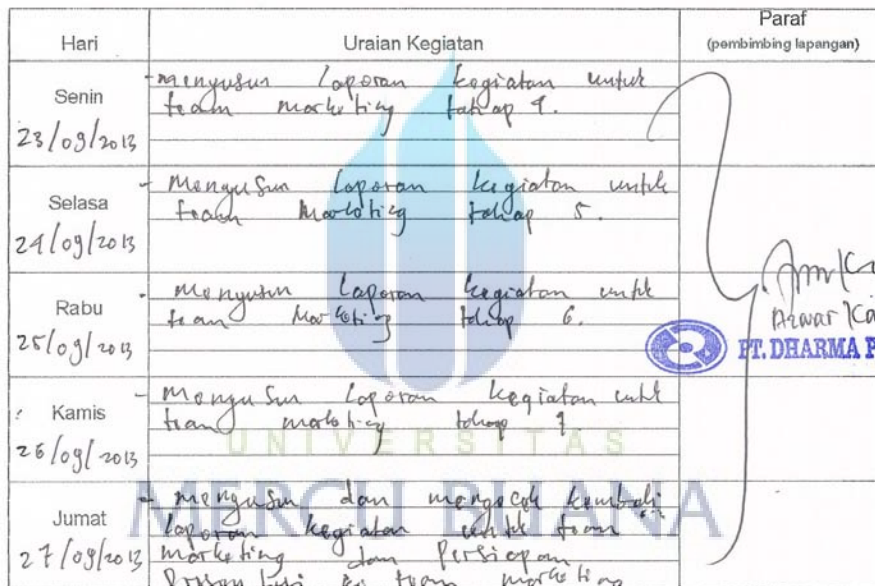 Hari Uraian Kegiatan Paraf
(pembimbing lapangan)
Senin
23/09/2013
- menyusun laporan kegiatan untuk
team marketing tahap 4.
Selasa
24/09/2013
- Menyusun laporan kegiatan untuk
team Marketing tahap 5.
Rabu
25/09/2013
- menyusun laporan kegiatan untuk
team Marketing tahap 6.
Azwar
PT. DHARMA P
Kamis
26/09/2013
- Menyusun laporan kegiatan untuk
team marketing tahap 7.
UNIVERSITAS
MERCU BUANA
Jumat
27/09/2013
- menyusun dan mengecek kembali
laporan kegiatan untuk team
marketing dan Persiapan
ke team marketing